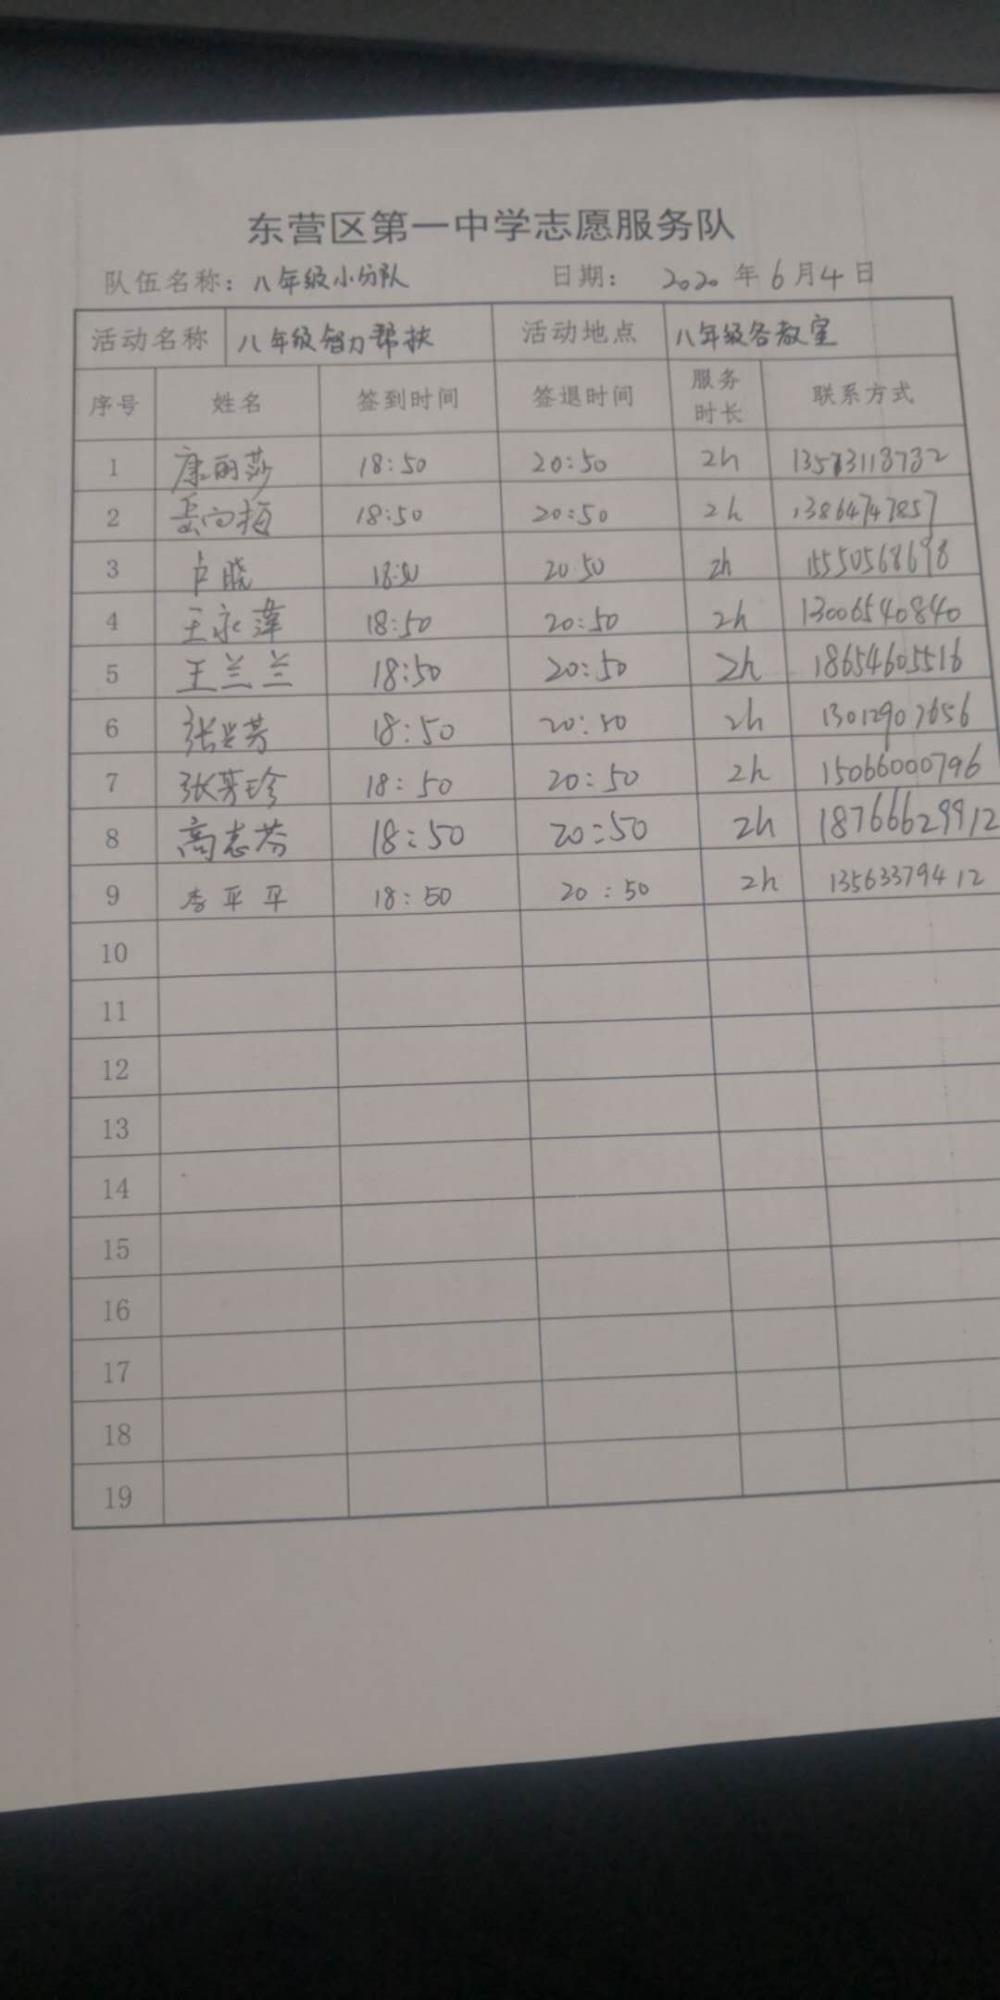 东营区第一中学志愿服务队
队伍名称：八年级小分队 日期： 2020 年 6 月 4 日
活动名称 八年级智力帮扶 活动地点 八年级各教室
序号 姓名 签到时间 签退时间 服务时长 联系方式
1 康丽莎 18:50 20:50 2h
2 岳向梅 18:50 20:50 2h 13864747857
3 卢晓 18:50 20 50 2h 15550568698
4 王永萍 18:50 20:50 2h 13006540840
5 王兰兰 18:50 20:50 2h 18654605516
6 张兴芳 18:50 20:50 2h 13012907656
7 张芳珍 18:50 20:50 2h 15066000796
8 高志芬 18:50 20:50 2h 18766629912
9 李平平 18:50 20:50 2h 13563379412
10
11
12
13
14
15
16
17
18
19